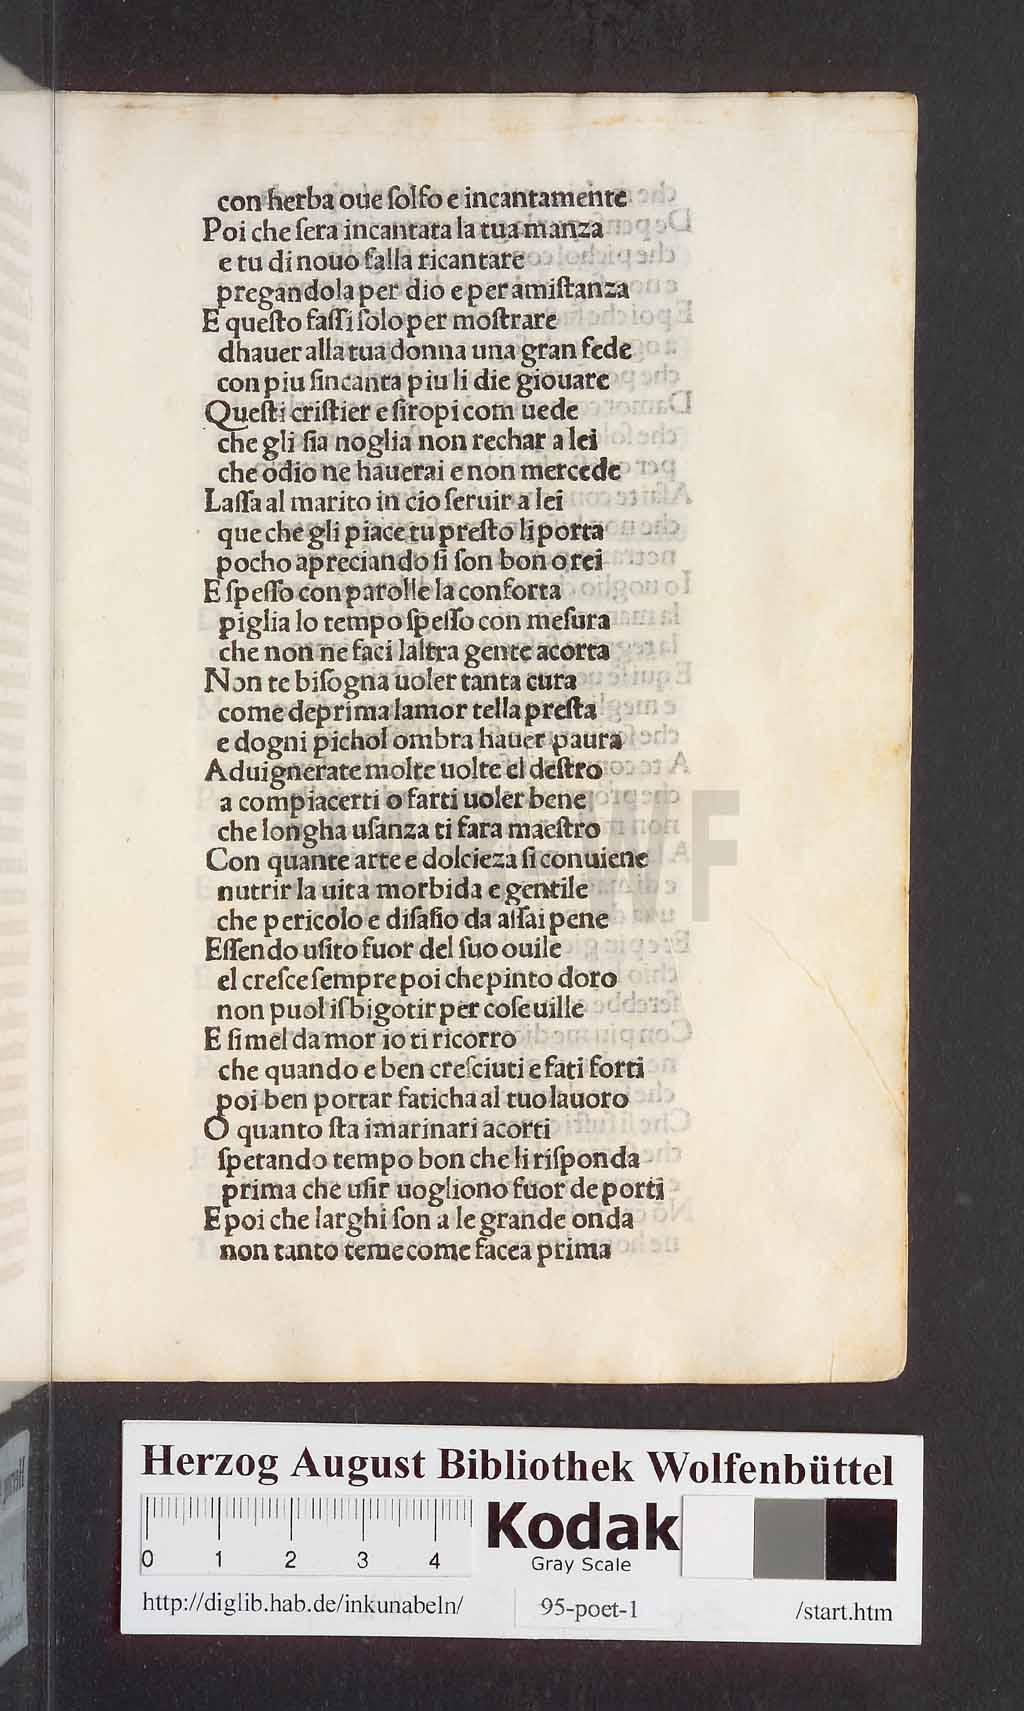 con herba oue ſolfo e incantamente
Poi che ſera incantata la tua manza
e tu di nouo falla ricantare
pregandola per dio e per amiſtanza
E queſto faſſi ſolo per moſtrare
dhauer alla tua donna una gran fede
con piu ſincanta piu li die giouare
Queſti criſtier e ſiropi com uede
che gli ſia noglia non rechar a lei
che odio ne hauerai e non mercede
Laſſa al marito in cio ſeruir a lei
que che gli piace tu preſto li porta
pocho apreciando ſi ſon bon o rei
E ſpeſſo con parolle la conforta
piglia lo tempo ſpeſſo con meſura
che non ne faci laltra gente acorta
Non te biſogna uoler tanta cura
come deprima lamor tella preſta
e dogni pichol ombra hauer paura
Aduignerate molte uolte el deſtro
a compiacerti o farti uoler bene
che longha uſanza ti fara maeſtro
Con quante arte e dolcieza ſi conuiene
nutrir la uita morbida e gentile
che pericolo e diſaſio da aſſai pene
Eſſendo uſito fuor del ſuo ouile
el creſce ſempre poi che pinto doro
non puol iſbigotir per coſe uille
E ſimel damor io ti ricorro
che quando e ben creſciuti e fati forti
poi ben portar faticha al tuo lauoro
O quanto ſta i marinari acorti
ſperando tempo bon che li riſponda
prima che uſir uogliono fuor de porti
E poi che larghi ſon a le grande onda
non tanto teme come facea prima
HAB WF
Herzog August Bibliothek Wolfenbüttel
0 1 2 3 4
Kodak
Gray Scale
http://diglib.hab.de/inkunabeln/ 95-poet-1 /start.htm